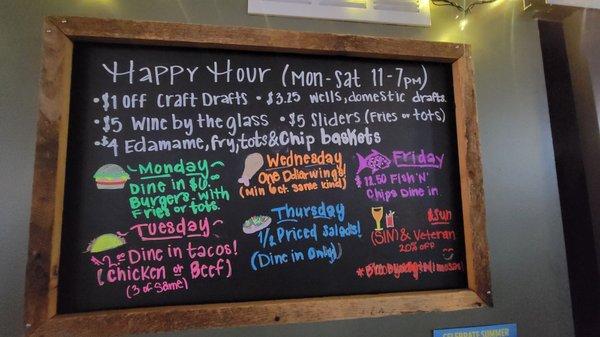 Happy Hour (Mon-Sat 11-7pm)
• $1 off Craft Drafts • $3.25 wells, domestic drafts.
• $5 Wine by the glass • $5 Sliders (Fries or tots)
• $4 Edamame, fry, tots & Chip baskets
~Monday~
Dine in
Burgers with
Fries or tots.
~Tuesday~
Dine in tacos!
(chicken or Beef)
(3 of Same)
Wednesday
One Dollar wings!
(Min 6ct. Same kind)
Thursday
1/2 Priced Salads!
(Dine in Only)
Friday
$12.50 Fish 'N'
Chips Dine in.
Sun
(SIN) & Veteran
20% off
CELEBRATE SUMMER